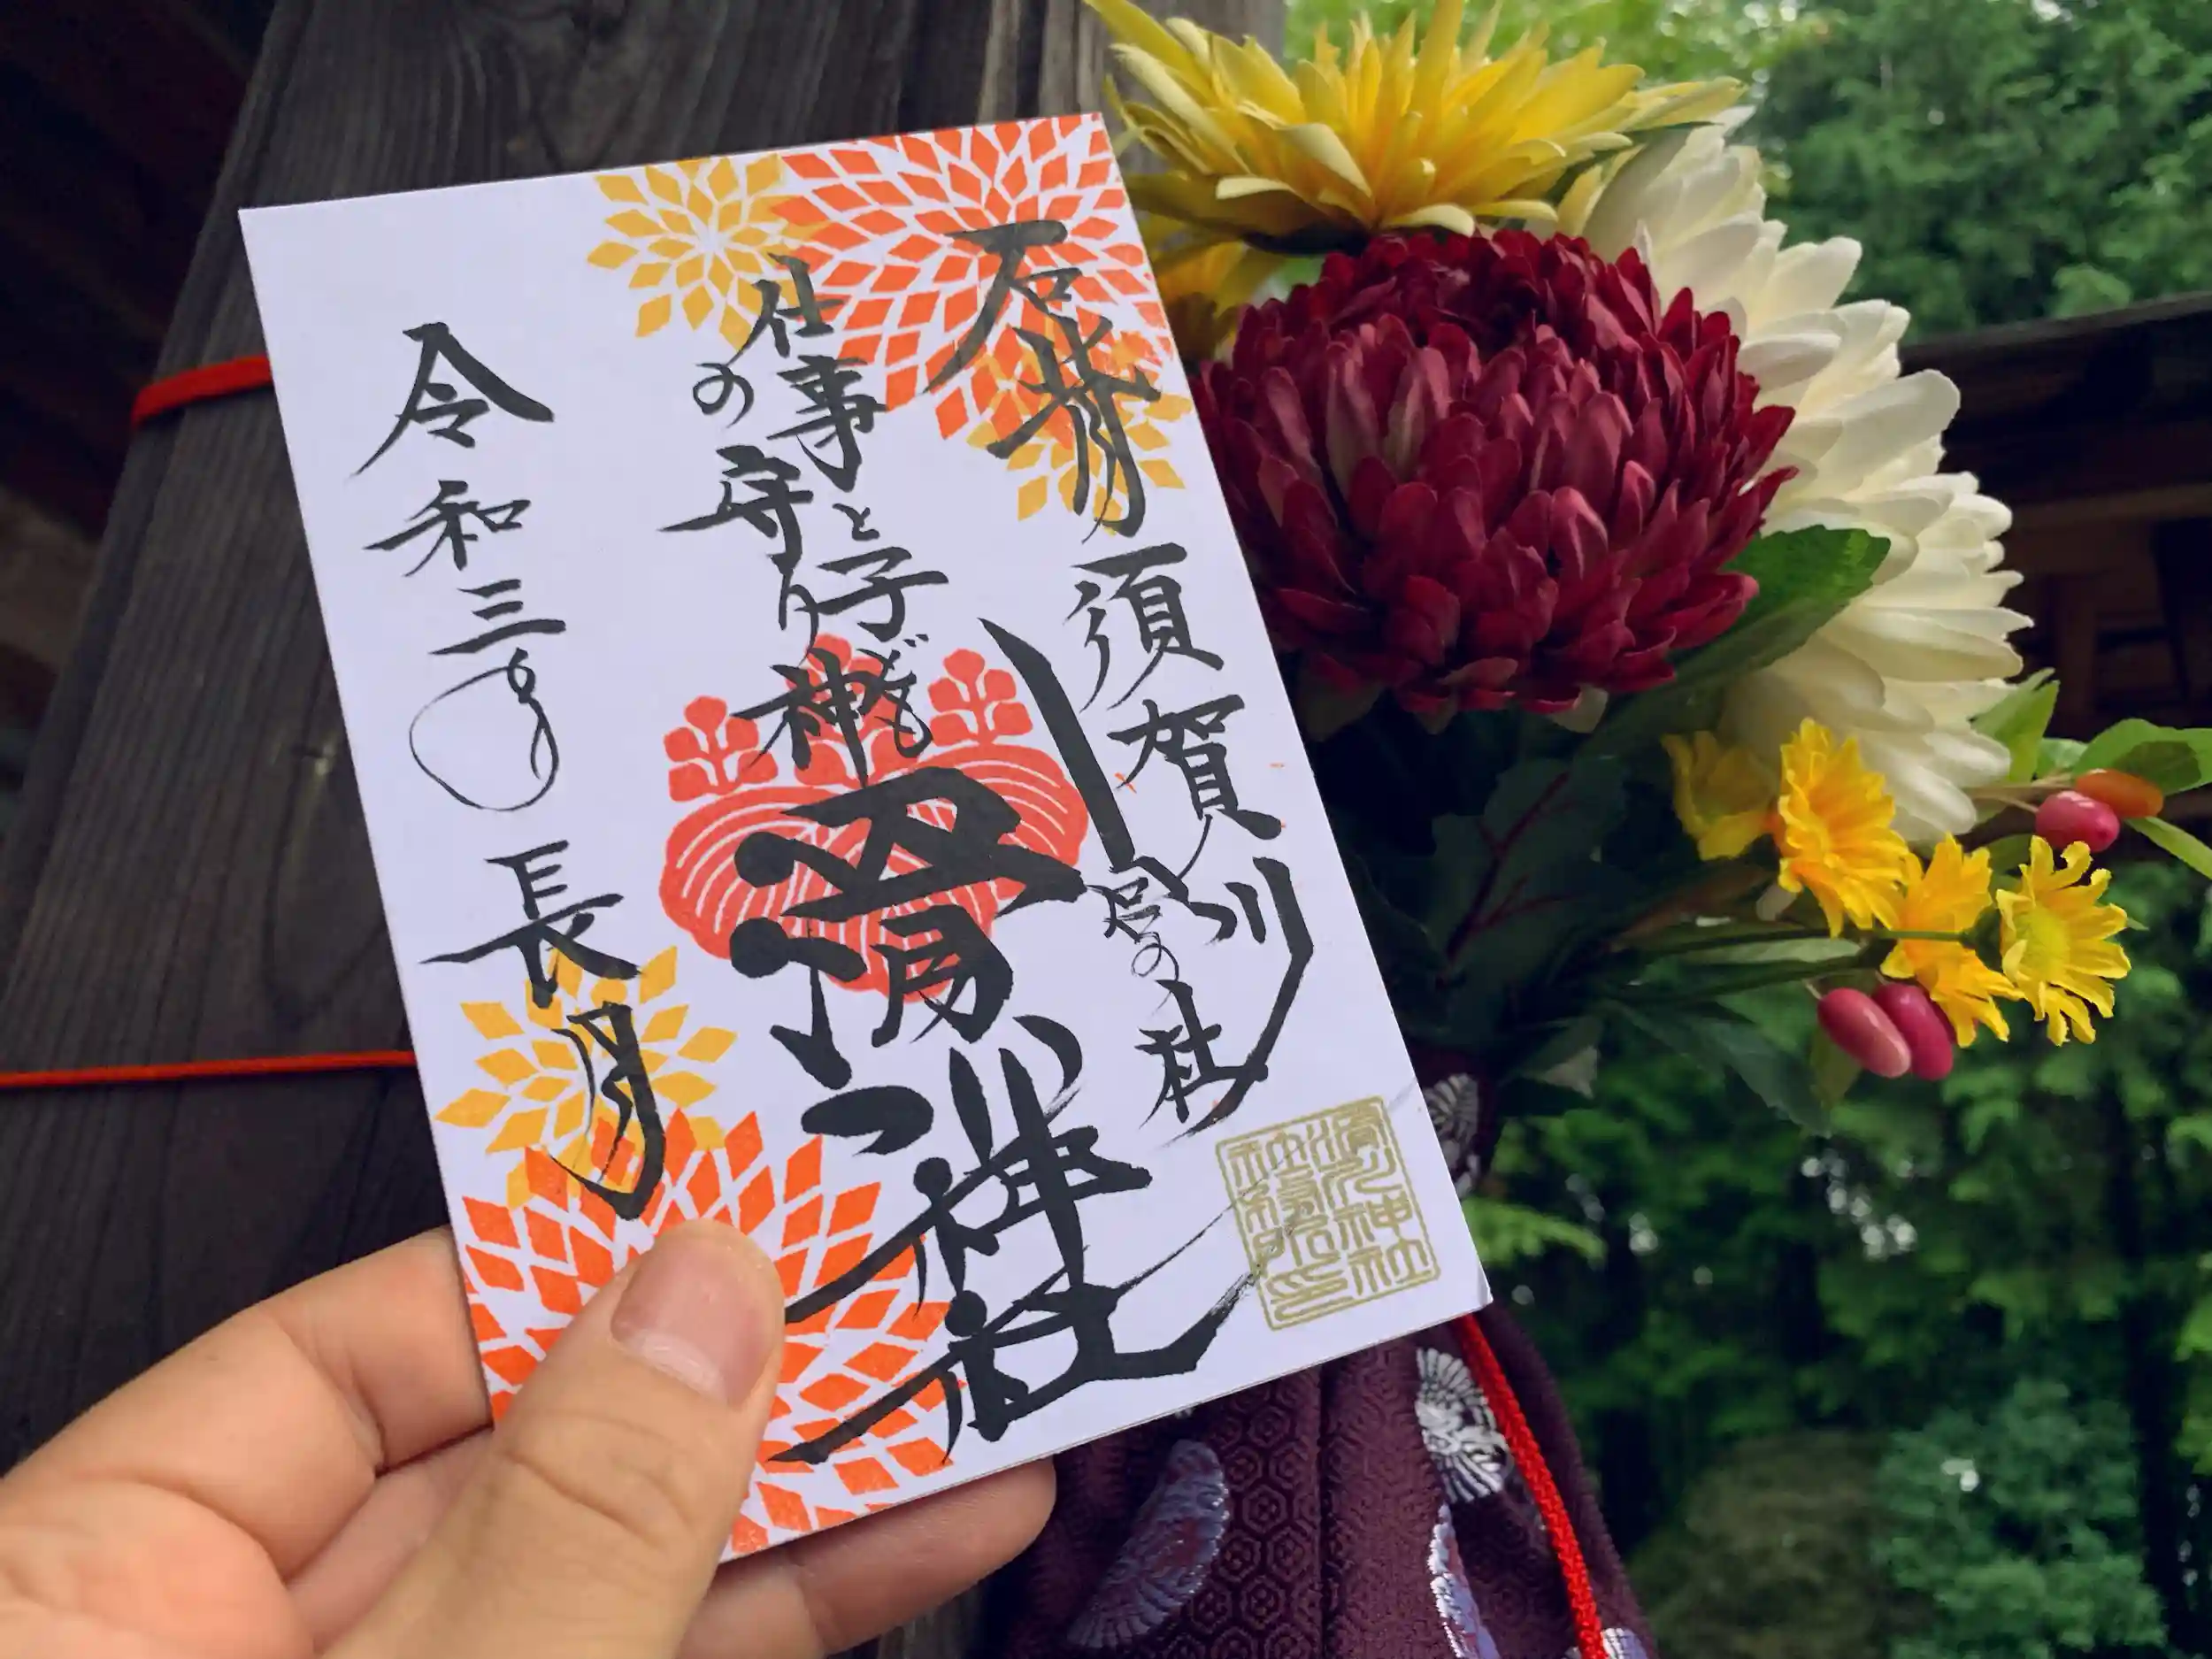 石背 須賀川
の社
仕事と子ども
の守り神
滑川神社
令和三年 長月
滑川神社
社務所印